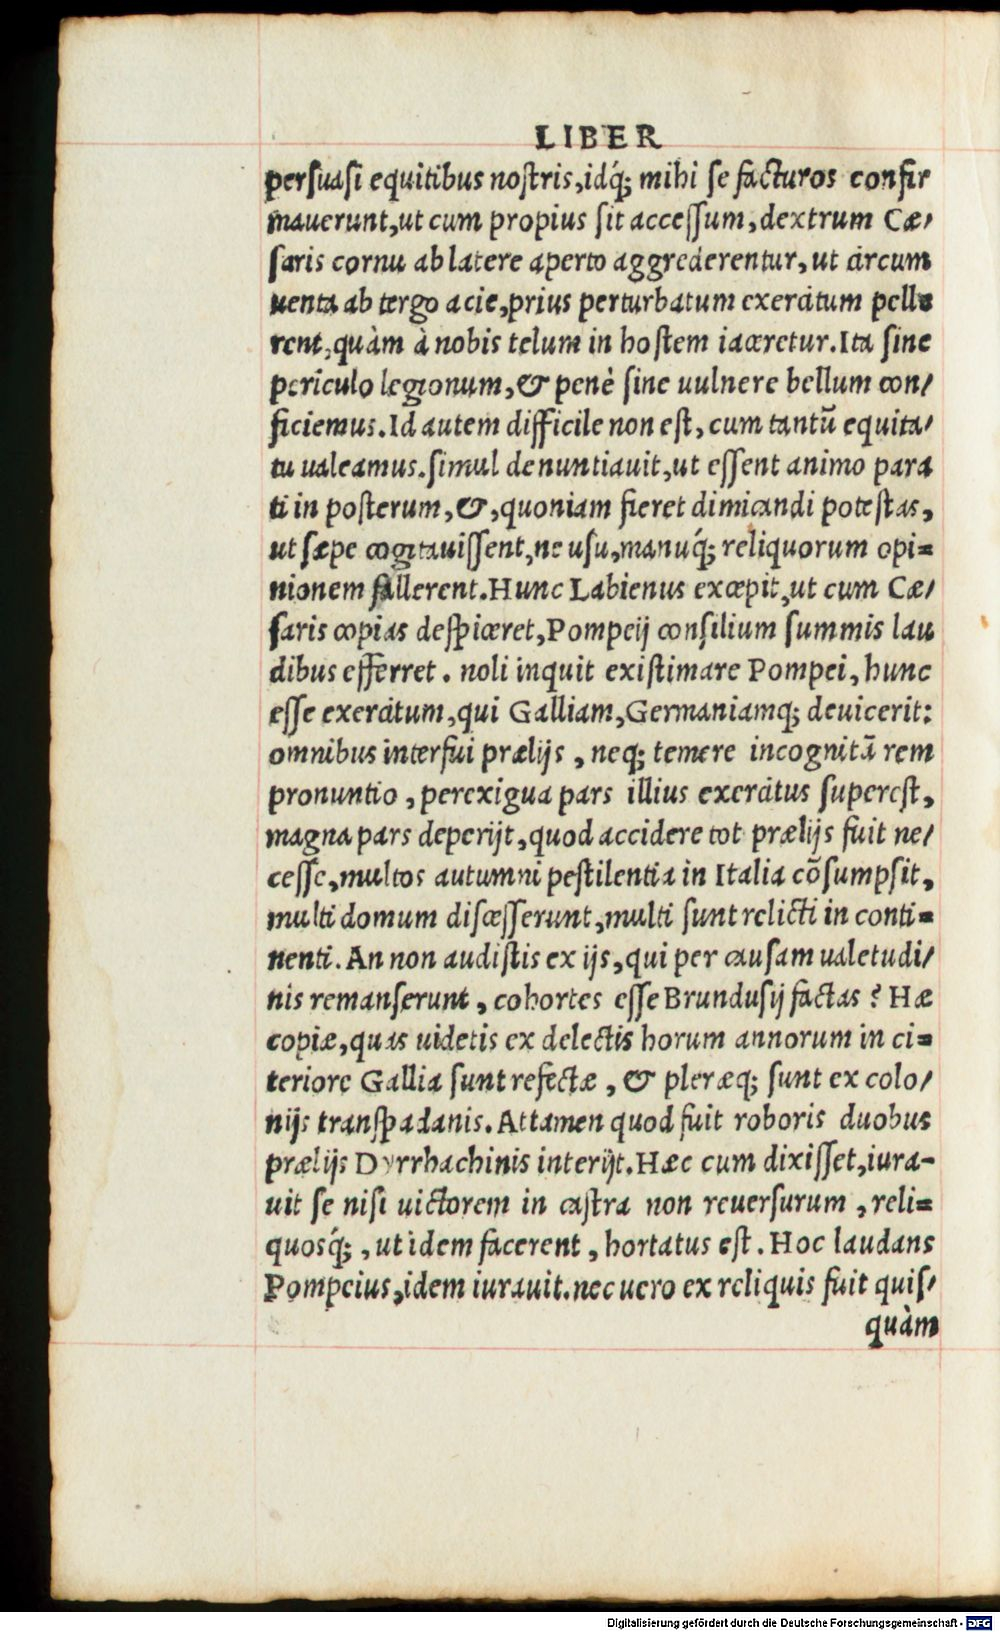 LIBER
persuasi equitibus nostris, idq́; mihi se facturos confir
mauerunt, ut cum propius sit accessum, dextrum Cæ/
saris cornu ab latere aperto aggrederentur, ut circum
uenta ab tergo acie, prius perturbatum exercitum pelle
rent, quàm à nobis telum in hostem iaceretur. Ita sine
periculo legionum, & penè sine uulnere bellum con/
ficiemus. Id autem difficile non est, cum tantũ equita/
tu ualeamus. simul denuntiauit, ut essent animo para
ti in posterum, &, quoniam fieret dimicandi potestas,
ut sæpe cogitauissent, ne usu, manuq́; reliquorum opi=
nionem fallerent. Hunc Labienus excepit, ut cum Cæ/
saris copias despiceret, Pompeij consilium summis lau
dibus efferret. noli inquit existimare Pompei, hunc
esse exercitum, qui Galliam, Germaniamq; deuicerit:
omnibus interfui prælijs, neq; temere incognitã rem
pronuntio, perexigua pars illius exercitus superest,
magna pars deperijt, quod accidere tot prælijs fuit ne/
cesse, multos autumni pestilentia in Italia cõsumpsit,
multi domum discesserunt, multi sunt relicti in conti=
nenti. An non audistis ex ijs, qui per causam ualetudi/
nis remanserunt, cohortes esse Brundusij factas? Hæ
copiæ, quas uidetis ex delectis horum annorum in ci=
teriore Gallia sunt refectæ, & pleræq; sunt ex colo/
nijs transpadanis. Attamen quod fuit roboris duobus
prælijs Dyrrhachinis interijt. Hæc cum dixisset, iura-
uit se nisi uictorem in castra non reuersurum, reli=
quosq́;, ut idem facerent, hortatus est. Hoc laudans
Pompeius, idem iurauit. nec uero ex reliquis fuit quis/
quàm
Digitalisierung gefördert durch die Deutsche Forschungsgemeinschaft - DFG